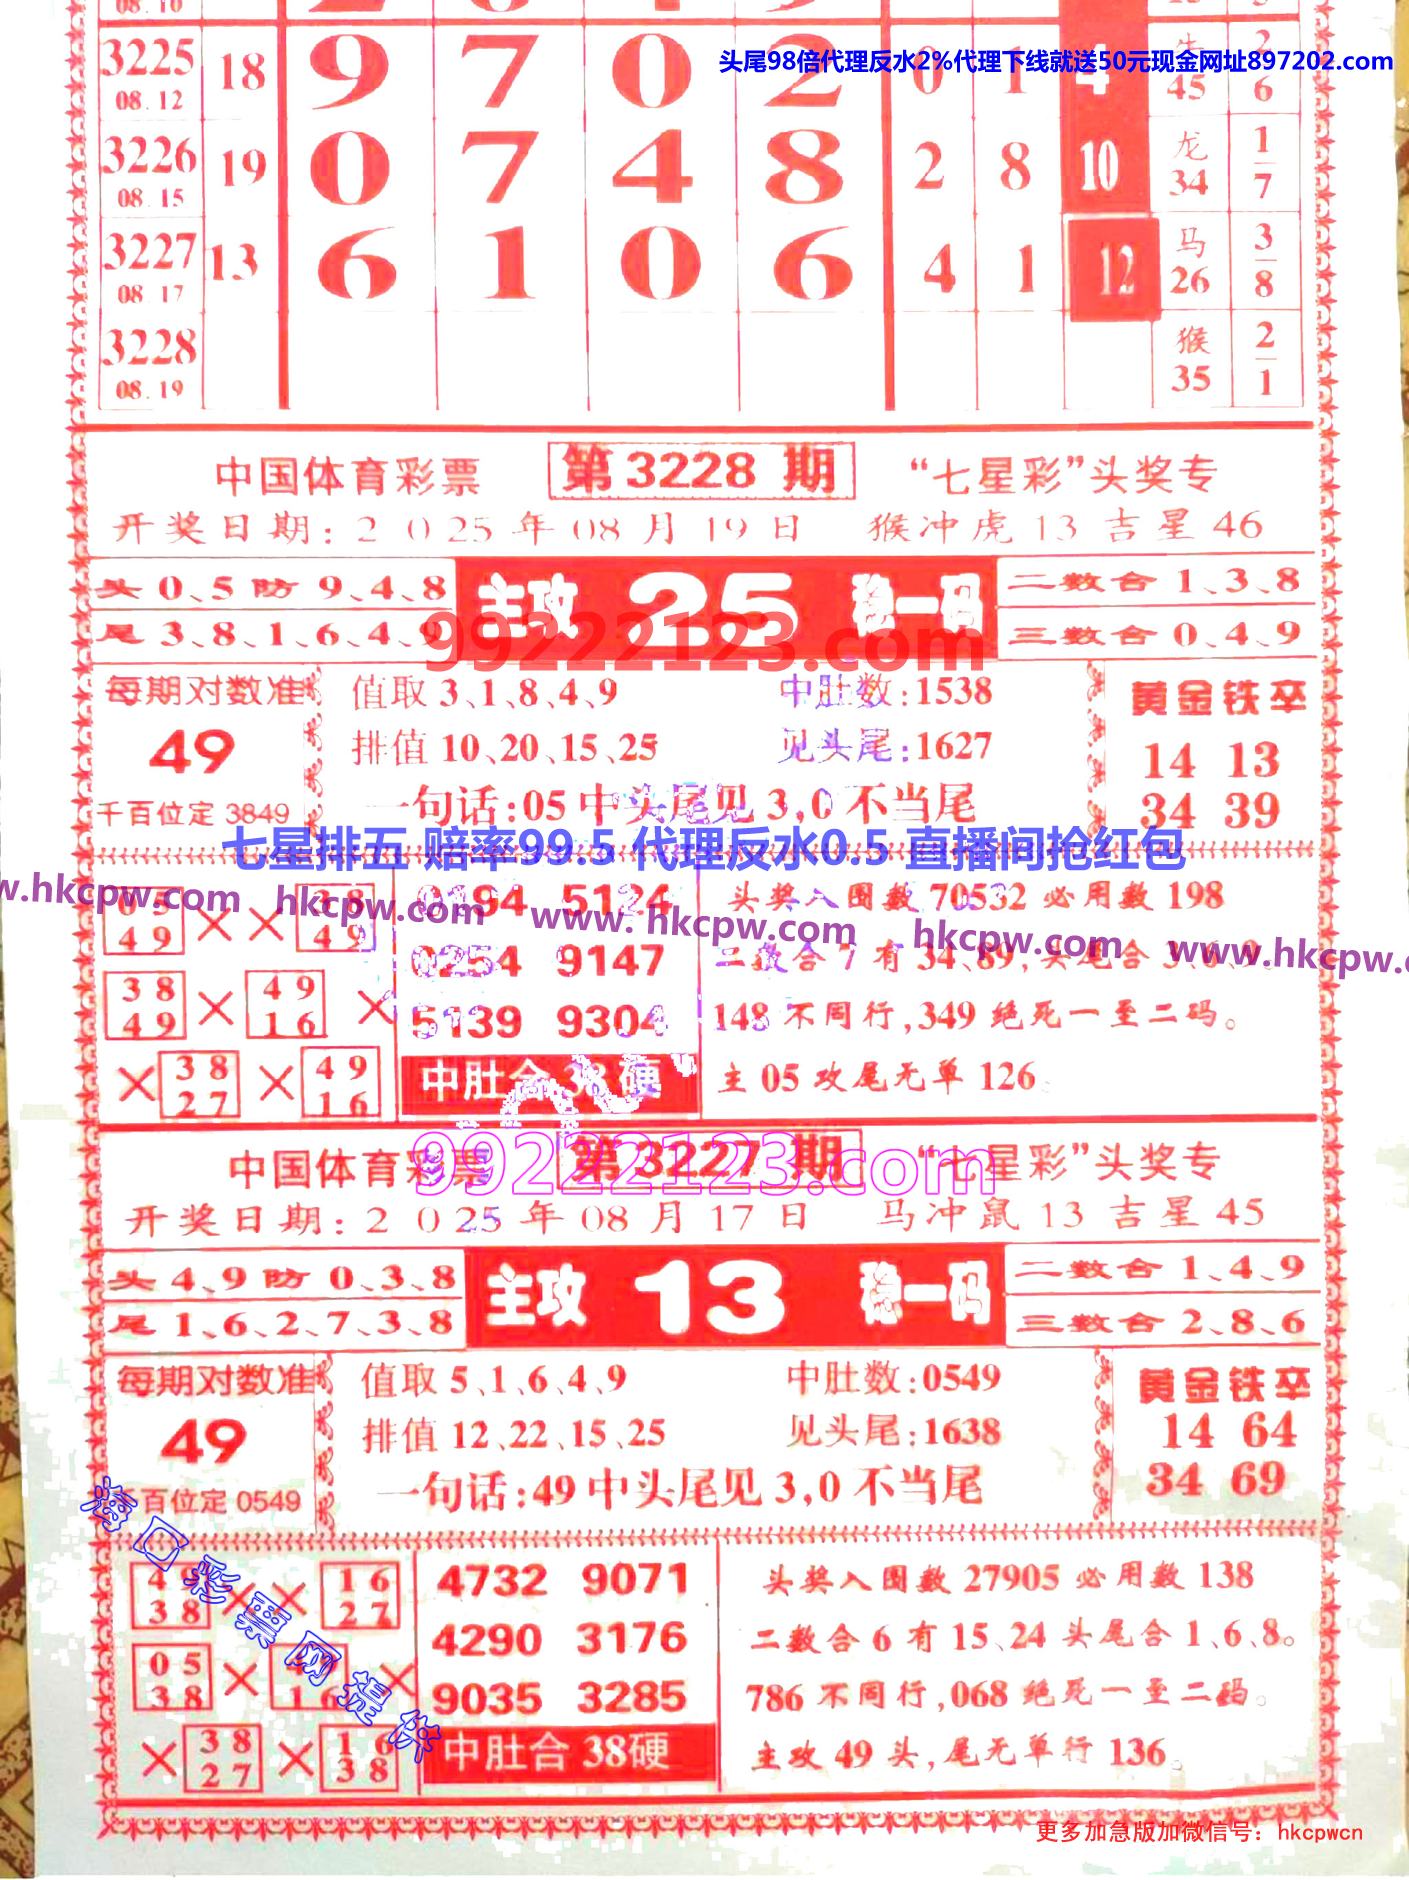 08.10
3225 18 9 7 0 2 0 1 4 牛 2
08.12 45 6
头尾98倍代理反水2%代理下线就送50元现金网址897202.com
3226 19 0 7 4 8 2 8 10 龙 1
08.15 34 7
3227 13 6 1 0 6 4 1 12 马 3
08 17 26 8
3228 猴 2
08.19 35 1
中国体育彩票 第3228 期 “七星彩”头奖专
开奖日期:2 025年08月19日 猴冲虎13吉星46
头0、5防9、4、8 主攻 25 稳一码 二数合1、3、8
尾3、8、1、6、4、9 三数合0、4、9
99222123.com
每期对数准 值取3、1、8、4、9 中肚数:1538 黄金铁卒
49 排值10、20、15、25 见头尾:1627 14 13
千百位定 3849 一句话:05中头尾见3,0不当尾 34 39
七星排五 赔率99.5 代理反水0.5 直播间抢红包
w.hkcpw.com hkcpw.com www.hkcpw.com hkcpw.com www.hkcpw.co
05 × × 38 0194 5124 头奖入围数70532必用数198
49 49
0254 9147 二数合7有34、89,头尾合3、6、9。
38 × 49 × 5139 9304 148不同行,349绝死一至二码。
49 16
× 38 × 49 中肚合38硬 主05攻尾无单126.
27 16
中国体育彩票 第3227 期 “七星彩”头奖专
99222123.com
开奖日期:2 025年08月17日 马冲鼠13吉星45
头4、9防0、3、8 主攻 13 稳一码 二数合1、4、9
尾1、6、2、7、3、8 三数合2、8、6
每期对数准 值取5、1、6、4、9 中肚数:0549 黄金铁卒
49 排值12、22、15、25 见头尾:1638 14 64
千百位定 0549 一句话:49中头尾见3,0不当尾 34 69
海口彩票网提供
49 × × 16 4732 9071 头奖入围数27905必用数138
38 27
4290 3176 二数合6有15、24头尾合1、6、8。
05 × × 9035 3285 786不同行,068绝死一至二码。
38 16
× 38 × 16 中肚合38硬 主攻49头,尾无单行136。
27 38
更多加急版加微信号：hkcpwcn